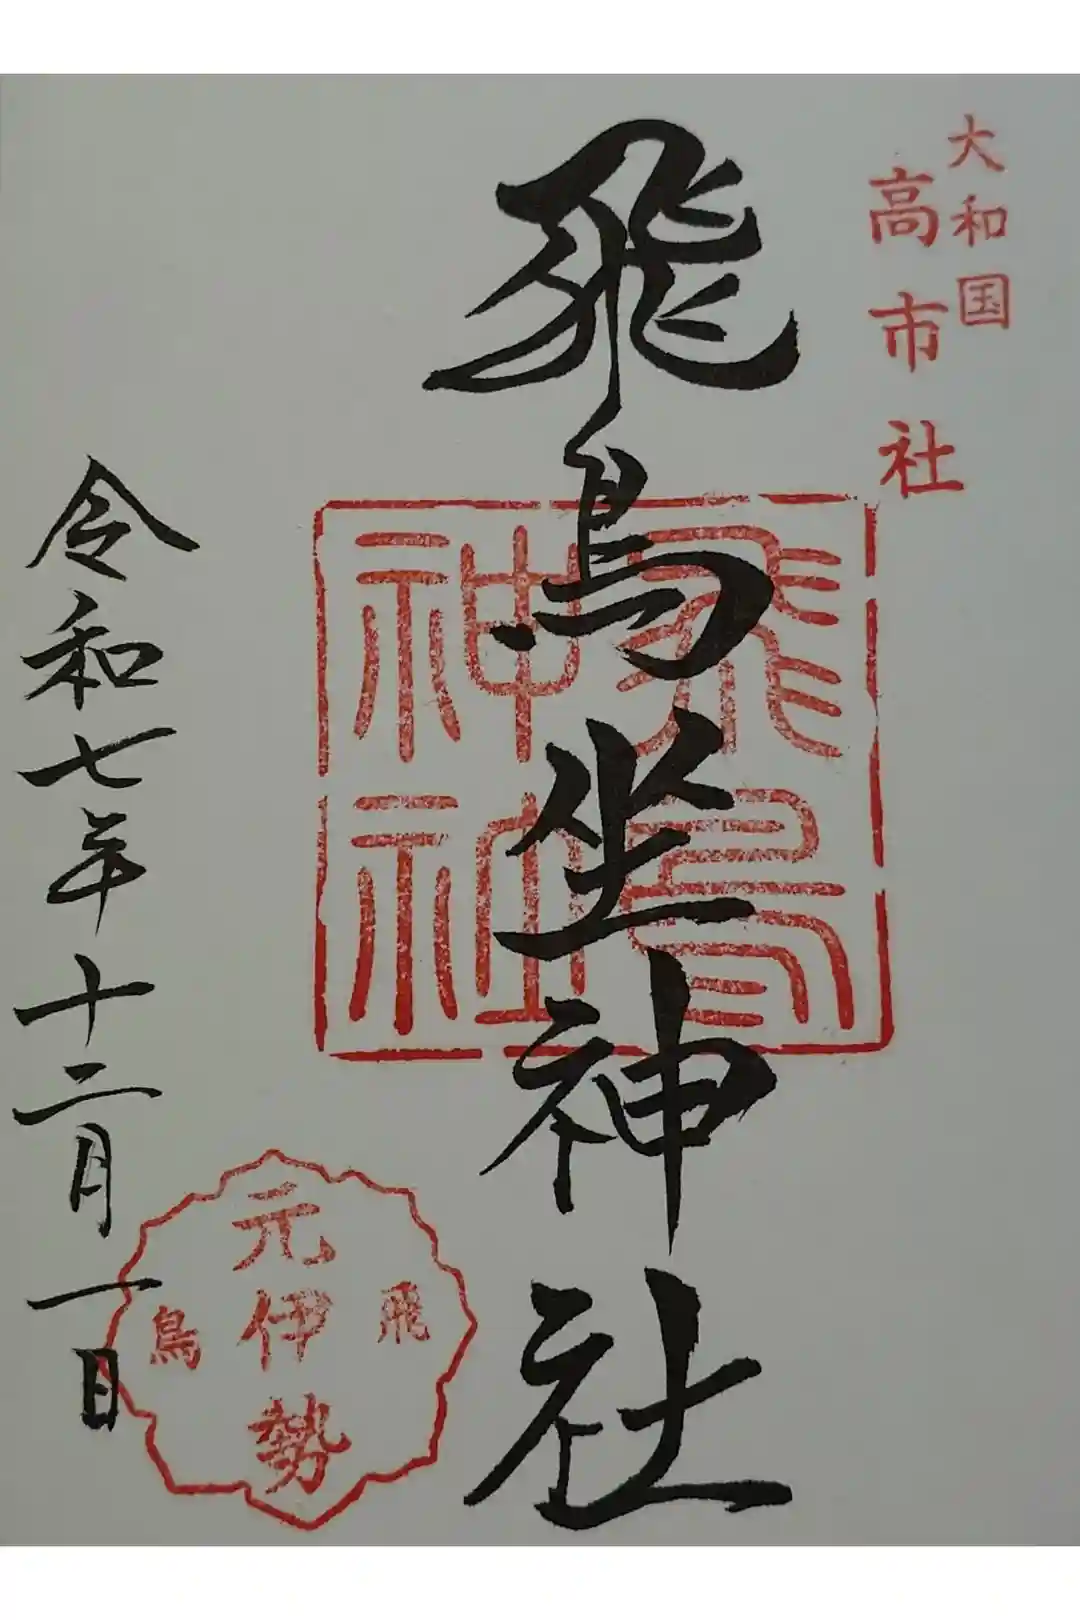 大和国
高市社
飛鳥坐神社
飛鳥
神社
令和七年十二月一日
飛鳥
元伊勢